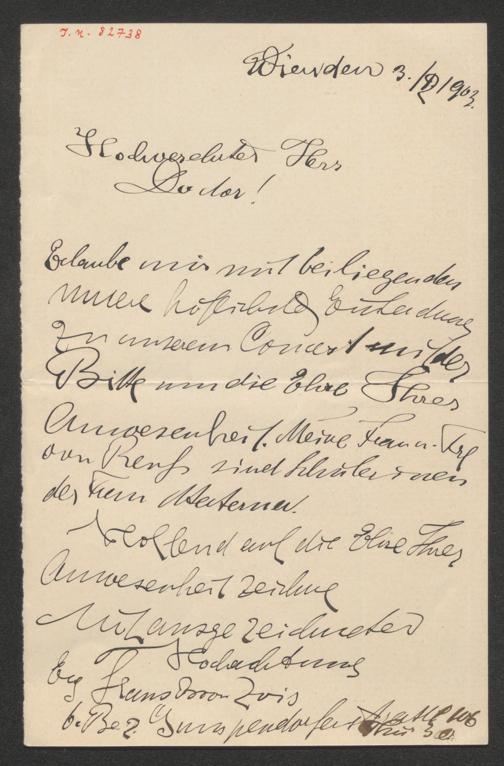 I. N. 82738
Wien den 3./II 1903.
Hochverehrter Herr
Doctor!
Erlaube mir mit beiliegenden
unsere höflichste Einladung
zu unserem Concert mit der
Bitte um die Ehre Ihrer
Anwesenheit. Meine Frau u. Frl
von sind Schülerinnen
der Frau Materna.
Hoffend auf die Ehre Ihrer
Anwesenheit zeichne
Mit ausgezeichneter
Hochachtung
Hans Baron Zois
6. Bez. Gumpendorferstrasse 106
Thür